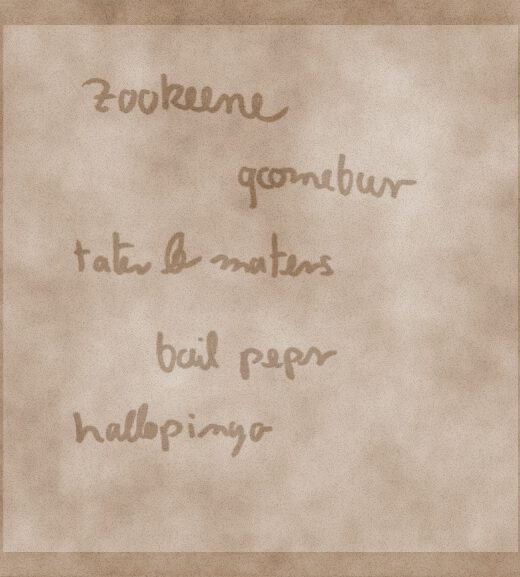 zookeene
qcomebur
tater & maters
bail pepr
hallopinyo